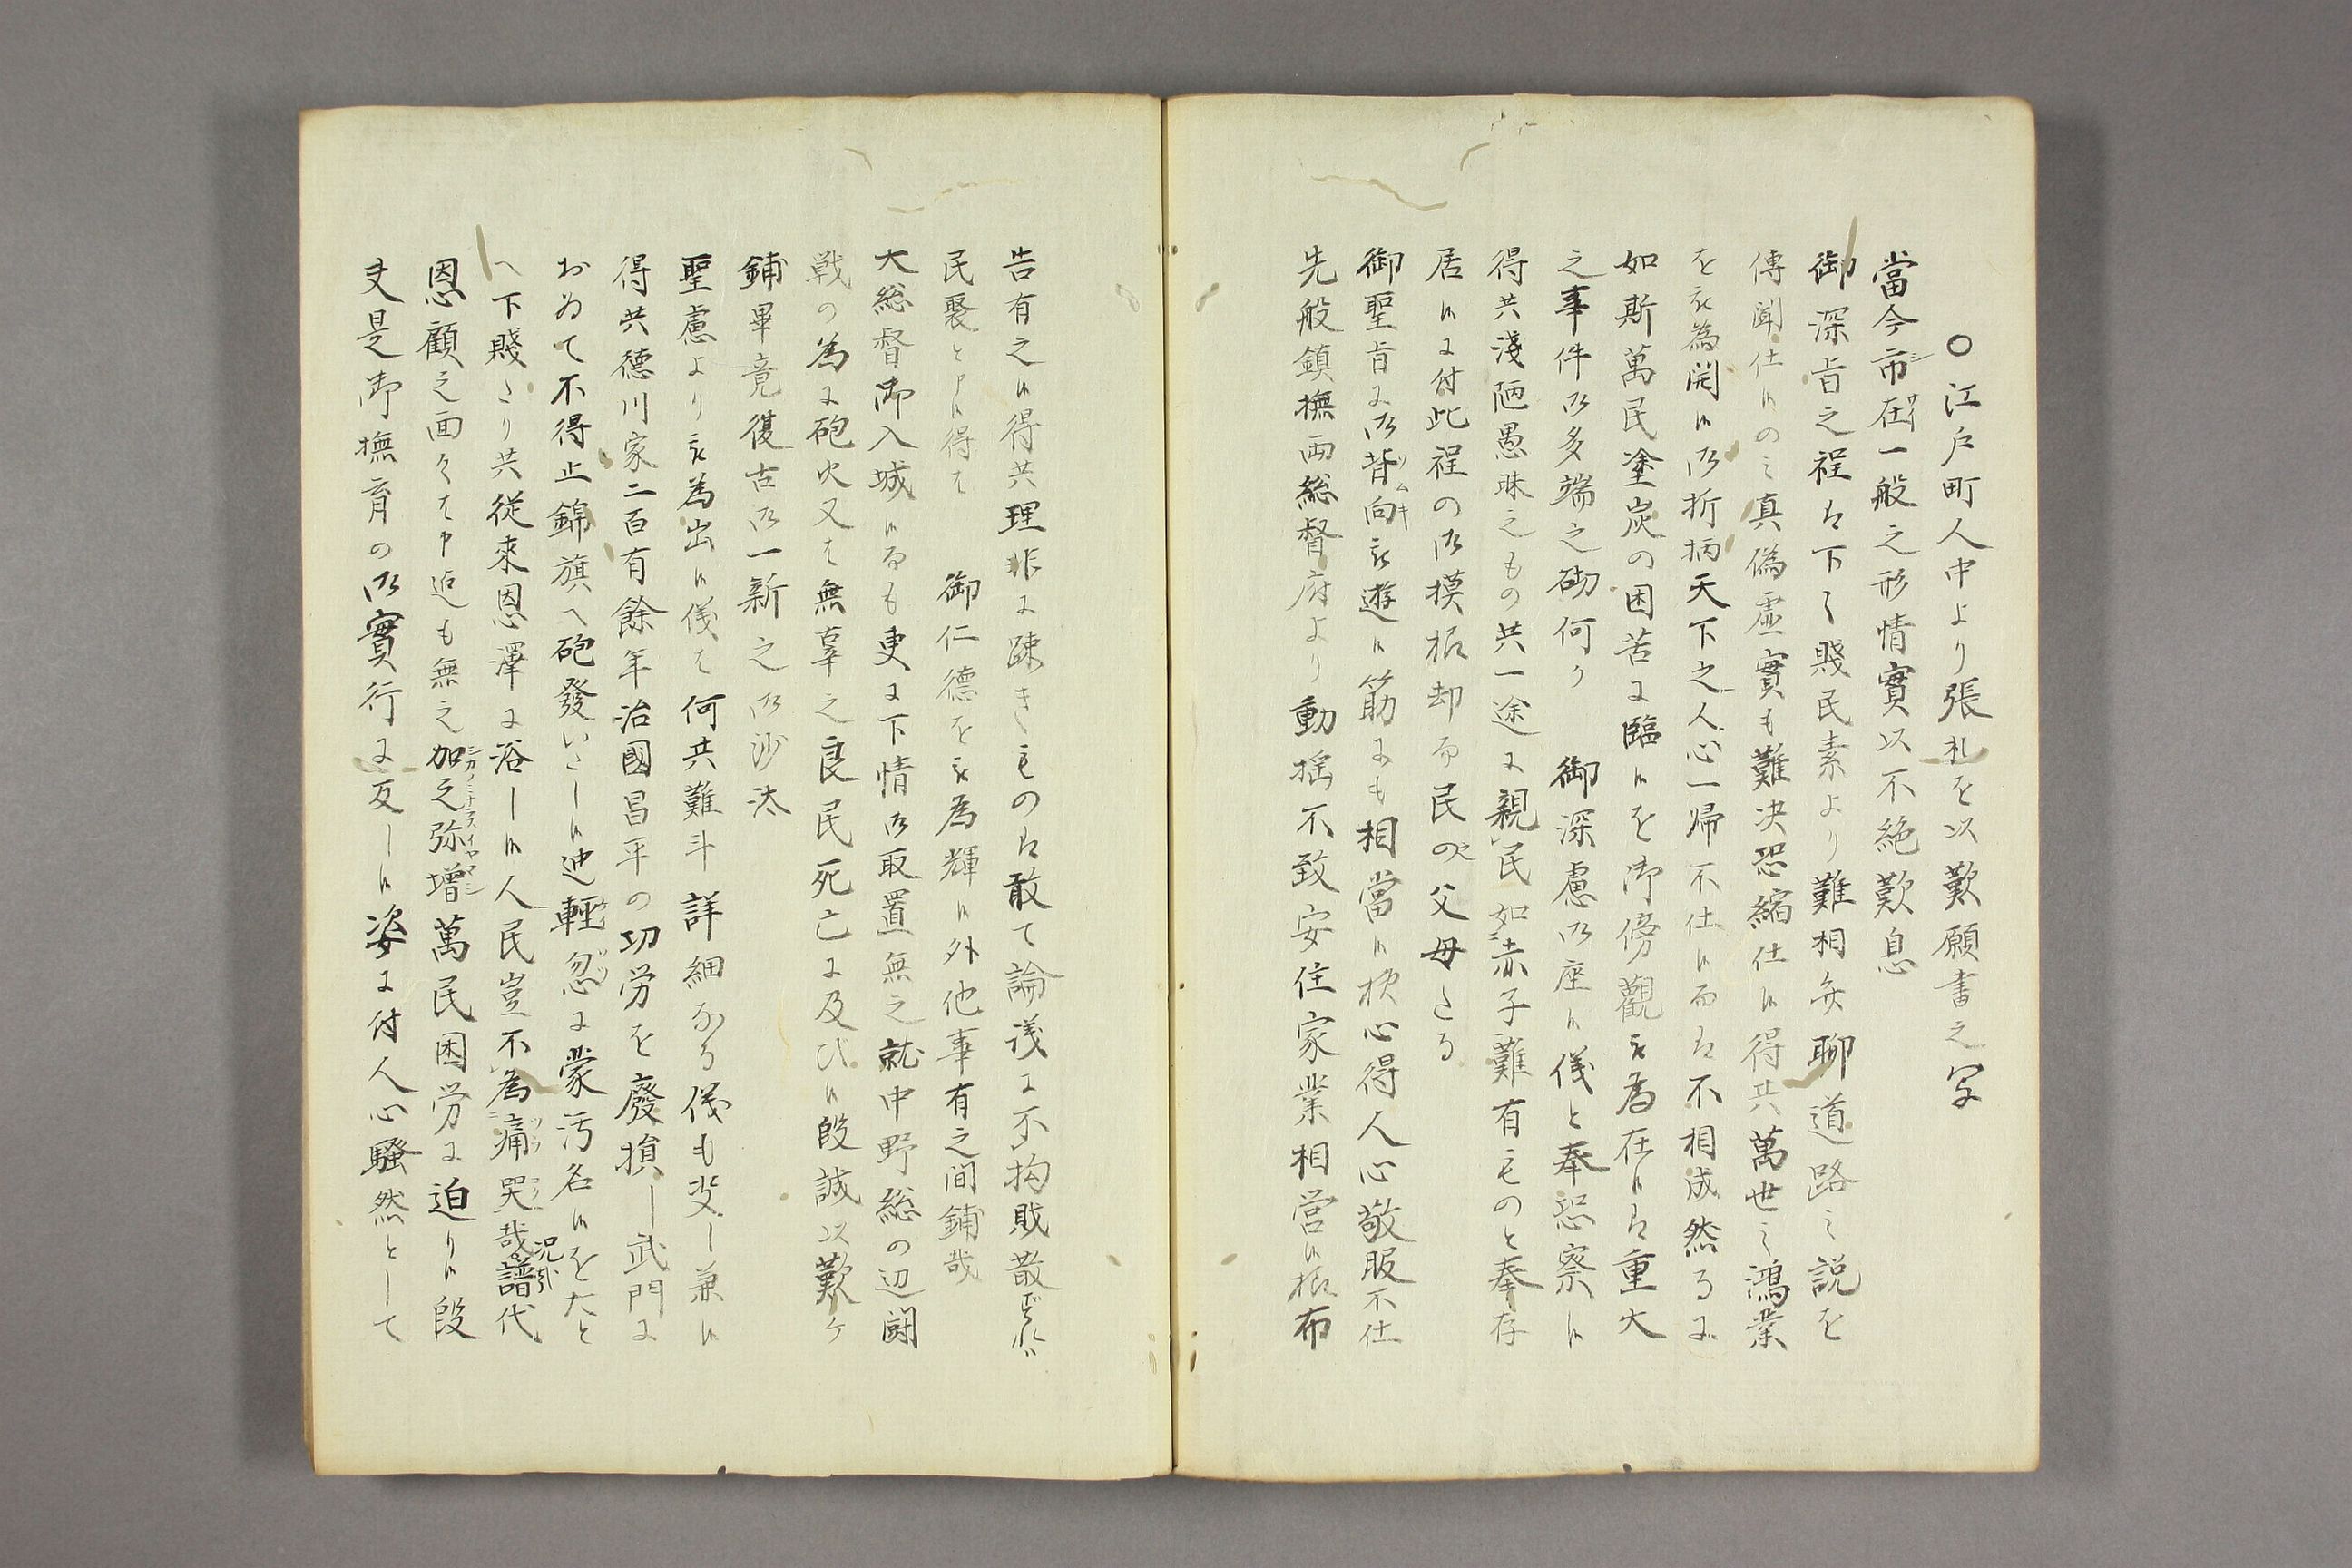 ○江戸町人中より張札を以歎願書之写
當今市在一般之形情實以不絶歎息
御深旨之程は下〻賤民素より難相弁聊道路之説を
傳聞仕候のミ真偽虚實も難決恐縮仕候得共萬世之鴻業
を被為開候御折柄天下之人心一帰不仕候而は不相成然るに
如斯萬民塗炭の困苦に臨候を御傍觀被為在候は重大
之事件御多端之砌何り　御深慮御座候儀と奉恐察候
得共淺陋愚昧之もの共一途に親民如赤子難有ものと奉存
居候に付此程の御摸振却而民の父母たる
御聖旨に御背向被遊候筋にも相當候抔心得人心敬服不仕
先般鎮撫両総督府より動揺不致安住家業相営候様布
告有之候得共理非に疎きものは敢て論議に不拘敗散すれバ
民聚と申候得は　御仁徳を被為輝候外他事有之間鋪哉
大総督御入城候而も更に下情御取置無之就中野総の辺闘
戦の為に砲火又は無辜之良民死亡に及び候段誠以歎ケ
鋪畢竟復古御一新之御沙汰
聖慮より被為出候儀は何共難斗詳細なる儀も炎し兼候
得共徳川家二百有餘年治國昌平の功労を廃損し武門に
おゐて不得止錦旗へ砲發いたし候迚輕忽に蒙汚名候をたと
へ下賤たり共従来恩澤に浴し候人民豈不為痛哭哉況乎譜代
恩顧之面々は申迄も無之加之弥増萬民困労に迫り候段
夫是御撫育の御實行に反し候姿に付人心騒然として